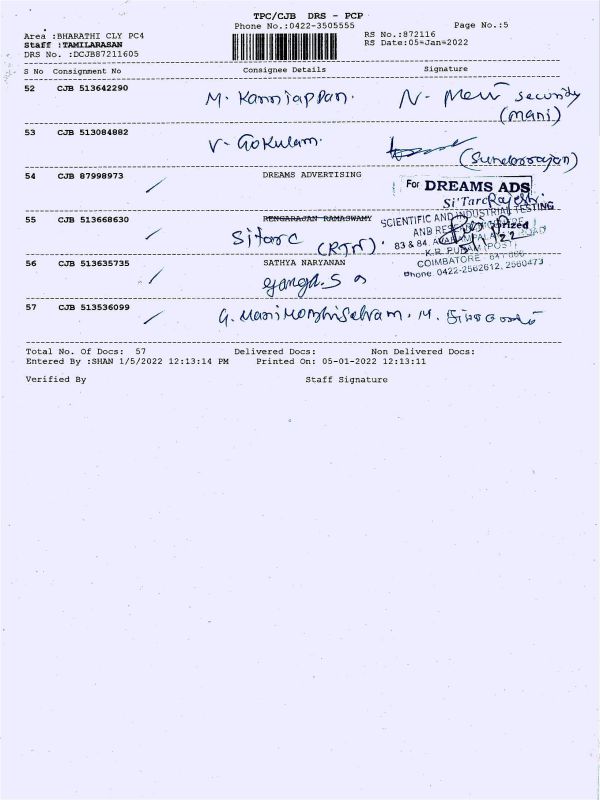 TPC/CJB DRS - PCP
Phone No.:0422-3505555 Page No.:5
Area :BHARATHI CLY PC4 RS No.:872116
Staff :TAMILARASAN RS Date:05-Jan-2022
DRS No. :DCJB87211605
S No Consignment No Consignee Details Signature
52 CJB 513642290 M. Kanniappan. security
(mani)
53 CJB 513084882 V. Gokulam.
(Sundarrajan)
54 CJB 87998973 DREAMS ADVERTISING
For DREAMS ADS
Si'Tarc
55 CJB 513668630 RENGARAJAN RAMASWAMY SCIENTIFIC AND INDUSTRIAL TESTING
Sitarc (RTN).
83 & 84, AVARAMPALAYAM ROAD
K.R. PURAM (POST)
56 CJB 513635735 SATHYA NARYANAN COIMBATORE
Phone: 0422-2562612, 2560473
57 CJB 513536099
Total No. Of Docs: 57 Delivered Docs: Non Delivered Docs:
Entered By :SHAN 1/5/2022 12:13:14 PM Printed On: 05-01-2022 12:13:11
Verified By Staff Signature